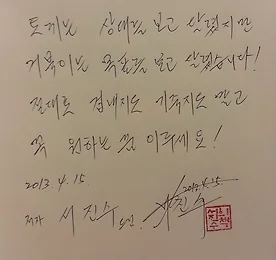 토끼는 상대를 보고 달렸지만
거북이는 목표를 보고 달렸습니다!
절대로 겁내지도 기죽지도 말고
꼭 원하는 꿈 이뤄세요!
2013. 4. 15.
저자 서진수 드림. 2013.4.15
서진수